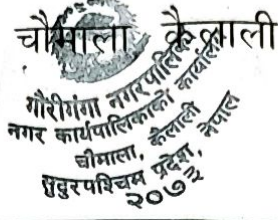 चौमाला, कैलाली
गौरीगंगा नगरपालिका
नगर कार्यपालिकाको कार्यालय
चौमाला, कैलाली
सुदुरपश्चिम प्रदेश, नेपाल